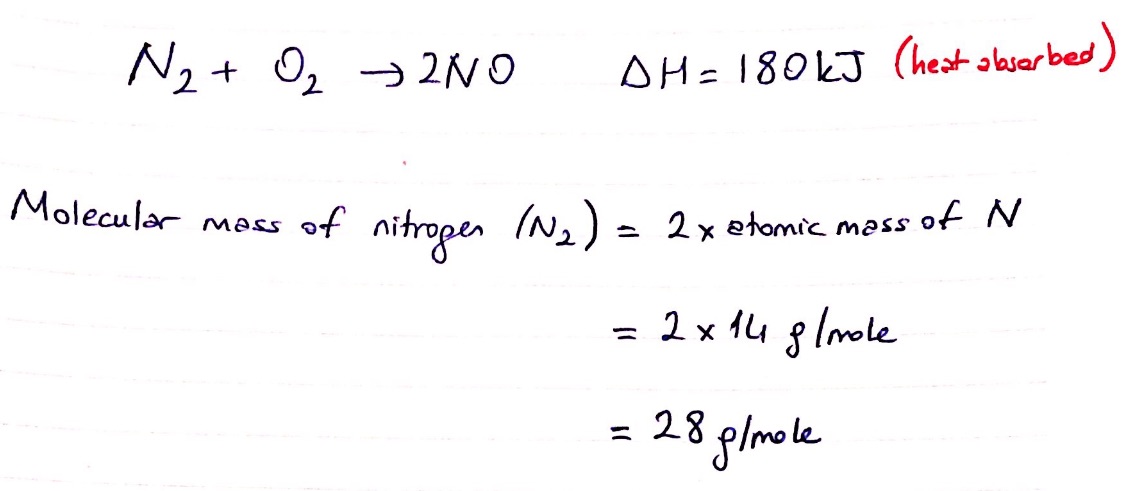 N₂ + O₂ → 2NO ΔH = 180kJ (heat absorbed)
Molecular mass of nitrogen (N₂) = 2 x atomic mass of N
= 2 x 14 g/mole
= 28 g/mole